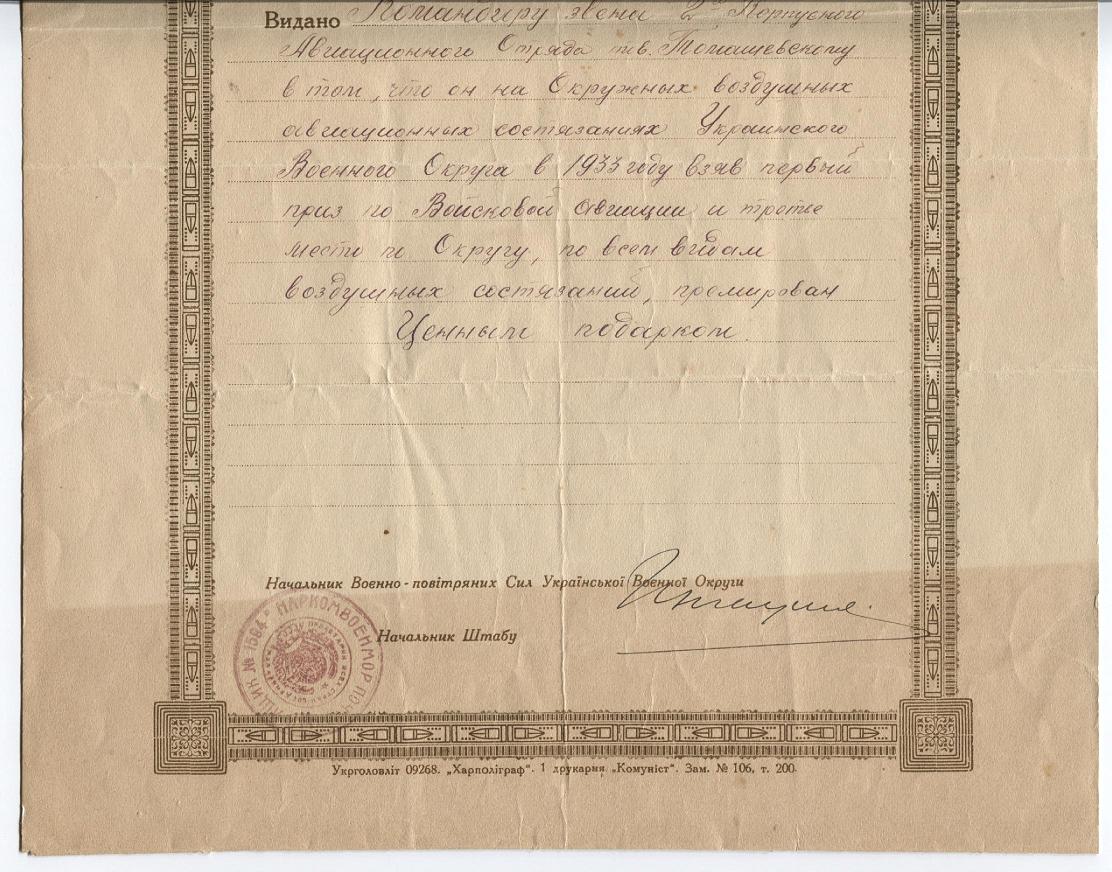 Видано Командиру звена 2го Корпусного
Авиационного Отряда тов. Томашевскому
в том, что он на Окружных воздушных
авиационных состязаниях Украинского
Военного Округа в 1933 году взяв первый
приз по Войсковой авиации и третье
место по Округу, по всем видам
воздушных состязаний, премирован
Ценным подарком.
Начальник Воєнно-повітряних Сил Української Воєнної Округи
Начальник Штабу
№ 1584 * НАРКОМВОЕНМОР ПО
Укрголовліт 09268. „Харполіграф“. 1 друкарня „Комуніст“. Зам. № 106, т. 200.